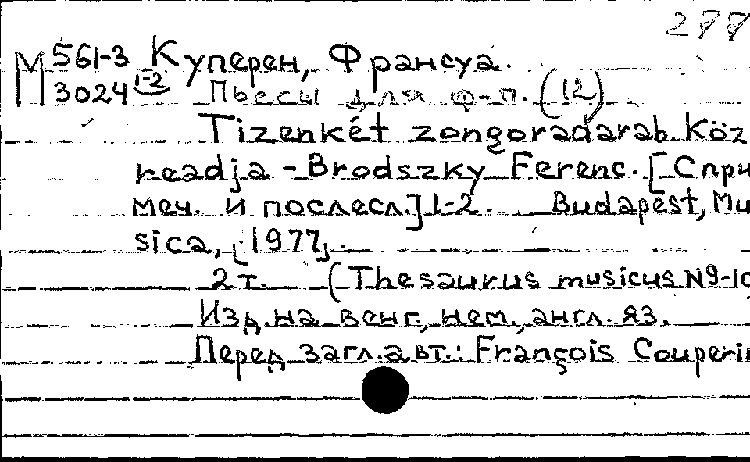 277
М 561-3 Куперен, Франсуа.
3024 1-2 Пьесы для ф-п. (12)
Tizenkét zongoradarab. Köz
readja - Brodszky Ferenc. [С при
меч. и послесл.] 1-2. Budapest, Mu
sica, [1977].
2 т. (Thesaurus musicus N9-10
Изд. на венг., нем., англ. яз.
Перед загл. авт.: François Couperin